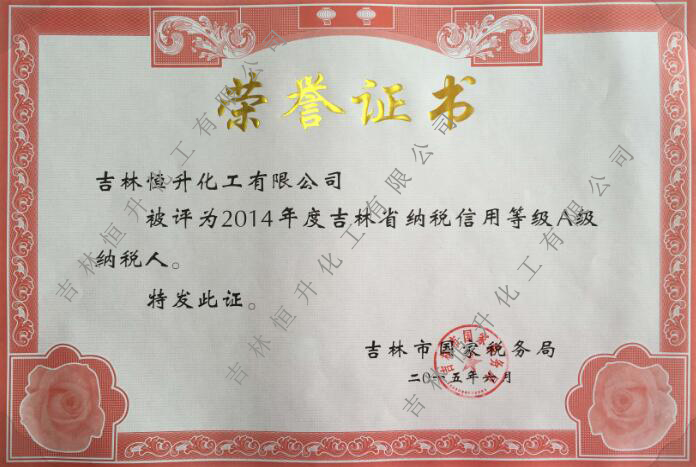 荣誉证书
吉林恒升化工有限公司
被评为2014年度吉林省纳税信用等级A级
纳税人。
特发此证。
吉林市国家税务局
二〇一五年六月
吉林恒升化工有限公司
吉林恒升化工有限公司
吉林恒升化工有限公司